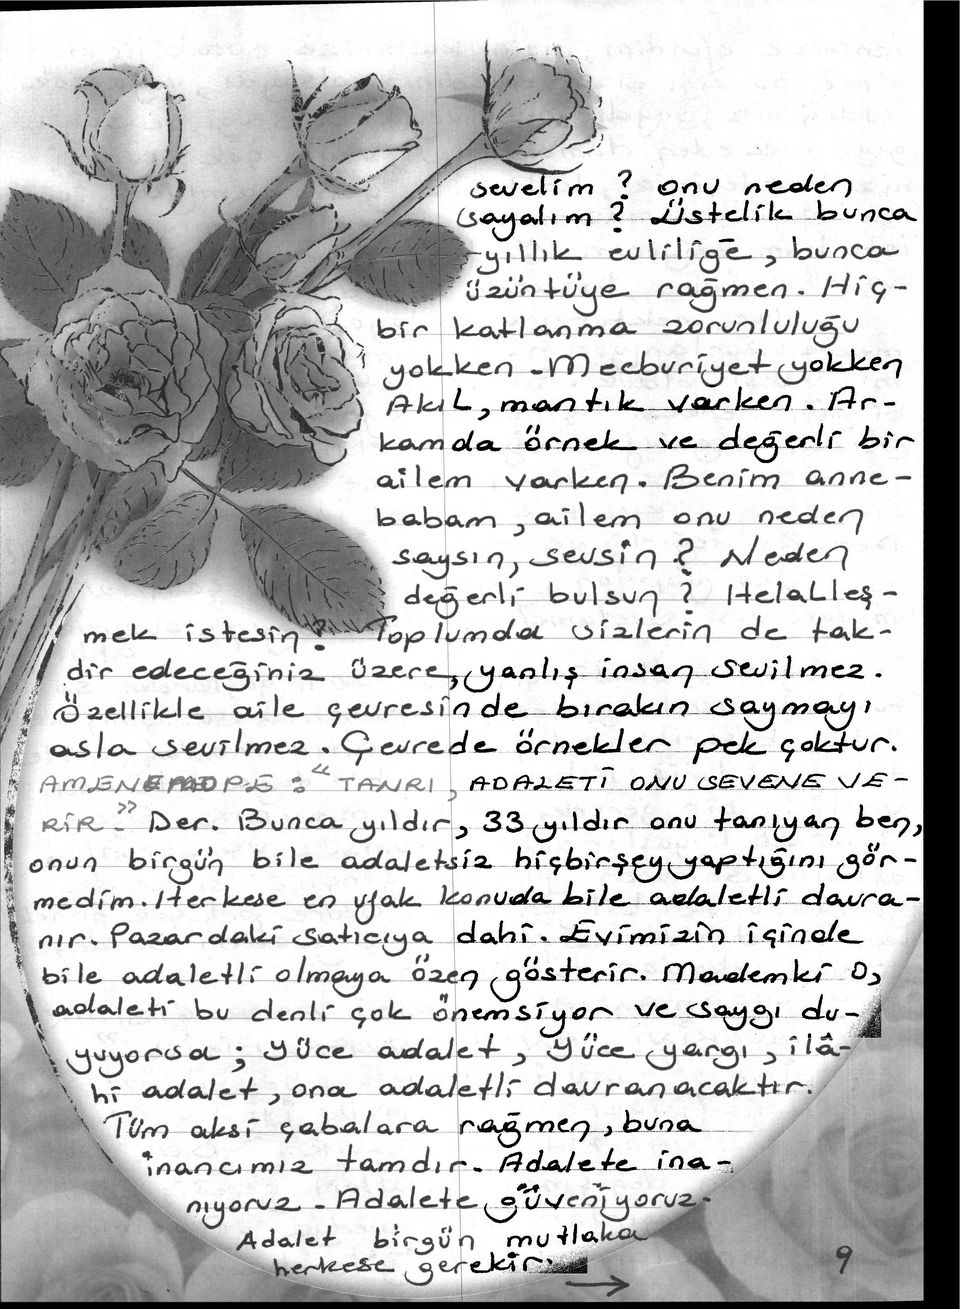 sevelim ? onu neden
sayalım ? Üstelik bunca
yıllık evliliğe, bunca
üzüntüye rağmen. Hiç-
bir katlanma zorunluluğu
yokken. Mecburiyet yokken
Akıl, mantık varken. Ar-
kamda örnek ve değerli bir
ailem varken. Benim anne-
babam, ailem onu neden
saysın, sevsin ? Neden
değerli bulsun ? Helalleş-
mek istesin? Toplumda sizlerin de tak-
dir edeceğiniz üzere, yanlış insan sevilmez.
Özellikle aile çevresinde bırakın saymayı
asla sevilmez. Çevrede örnekler pek çoktur.
AMENEMOPE : "TANRI, ADALETİ ONU SEVENE VE-
RİR." Der. Bunca yıldır, 33 yıldır onu tanıyan ben,
onun birgün bile adaletsiz hiçbirşey yaptığını gör-
medim. Herkese en ufak konuda bile adaletli davra-
nır. Pazardaki satıcıya dahi. Evimizin içinde
bile adaletli olmaya özen gösterir. Mademki O,
adaleti bu denli çok önemsiyor ve saygı du-
yuyorsa ; Yüce adalet, Yüce yargı, ilâ-
hi adalet, ona adaletli davranacaktır.
Tüm aksi çabalara rağmen, buna
inancımız tamdır. Adalete ina-
nıyoruz. Adalete güveniyoruz.
Adalet birgün mutlaka
herkese gerekir. →
9